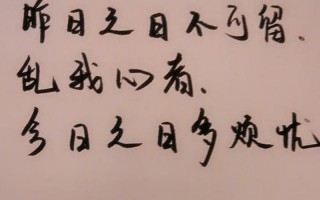 昨日之日不可留、
乱我心者、
今日之日多烦忧